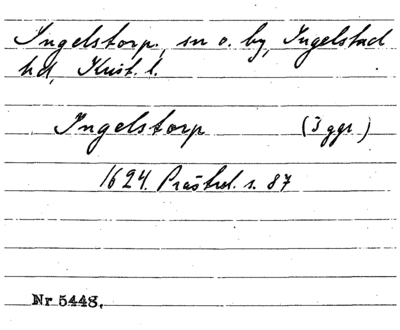 Ingelstorp, sn o. by, Ingelstad
hd, Krist. l.
Ingelstorp (3 ggr.)
1624. Prästrel. s. 87
Nr 5448.